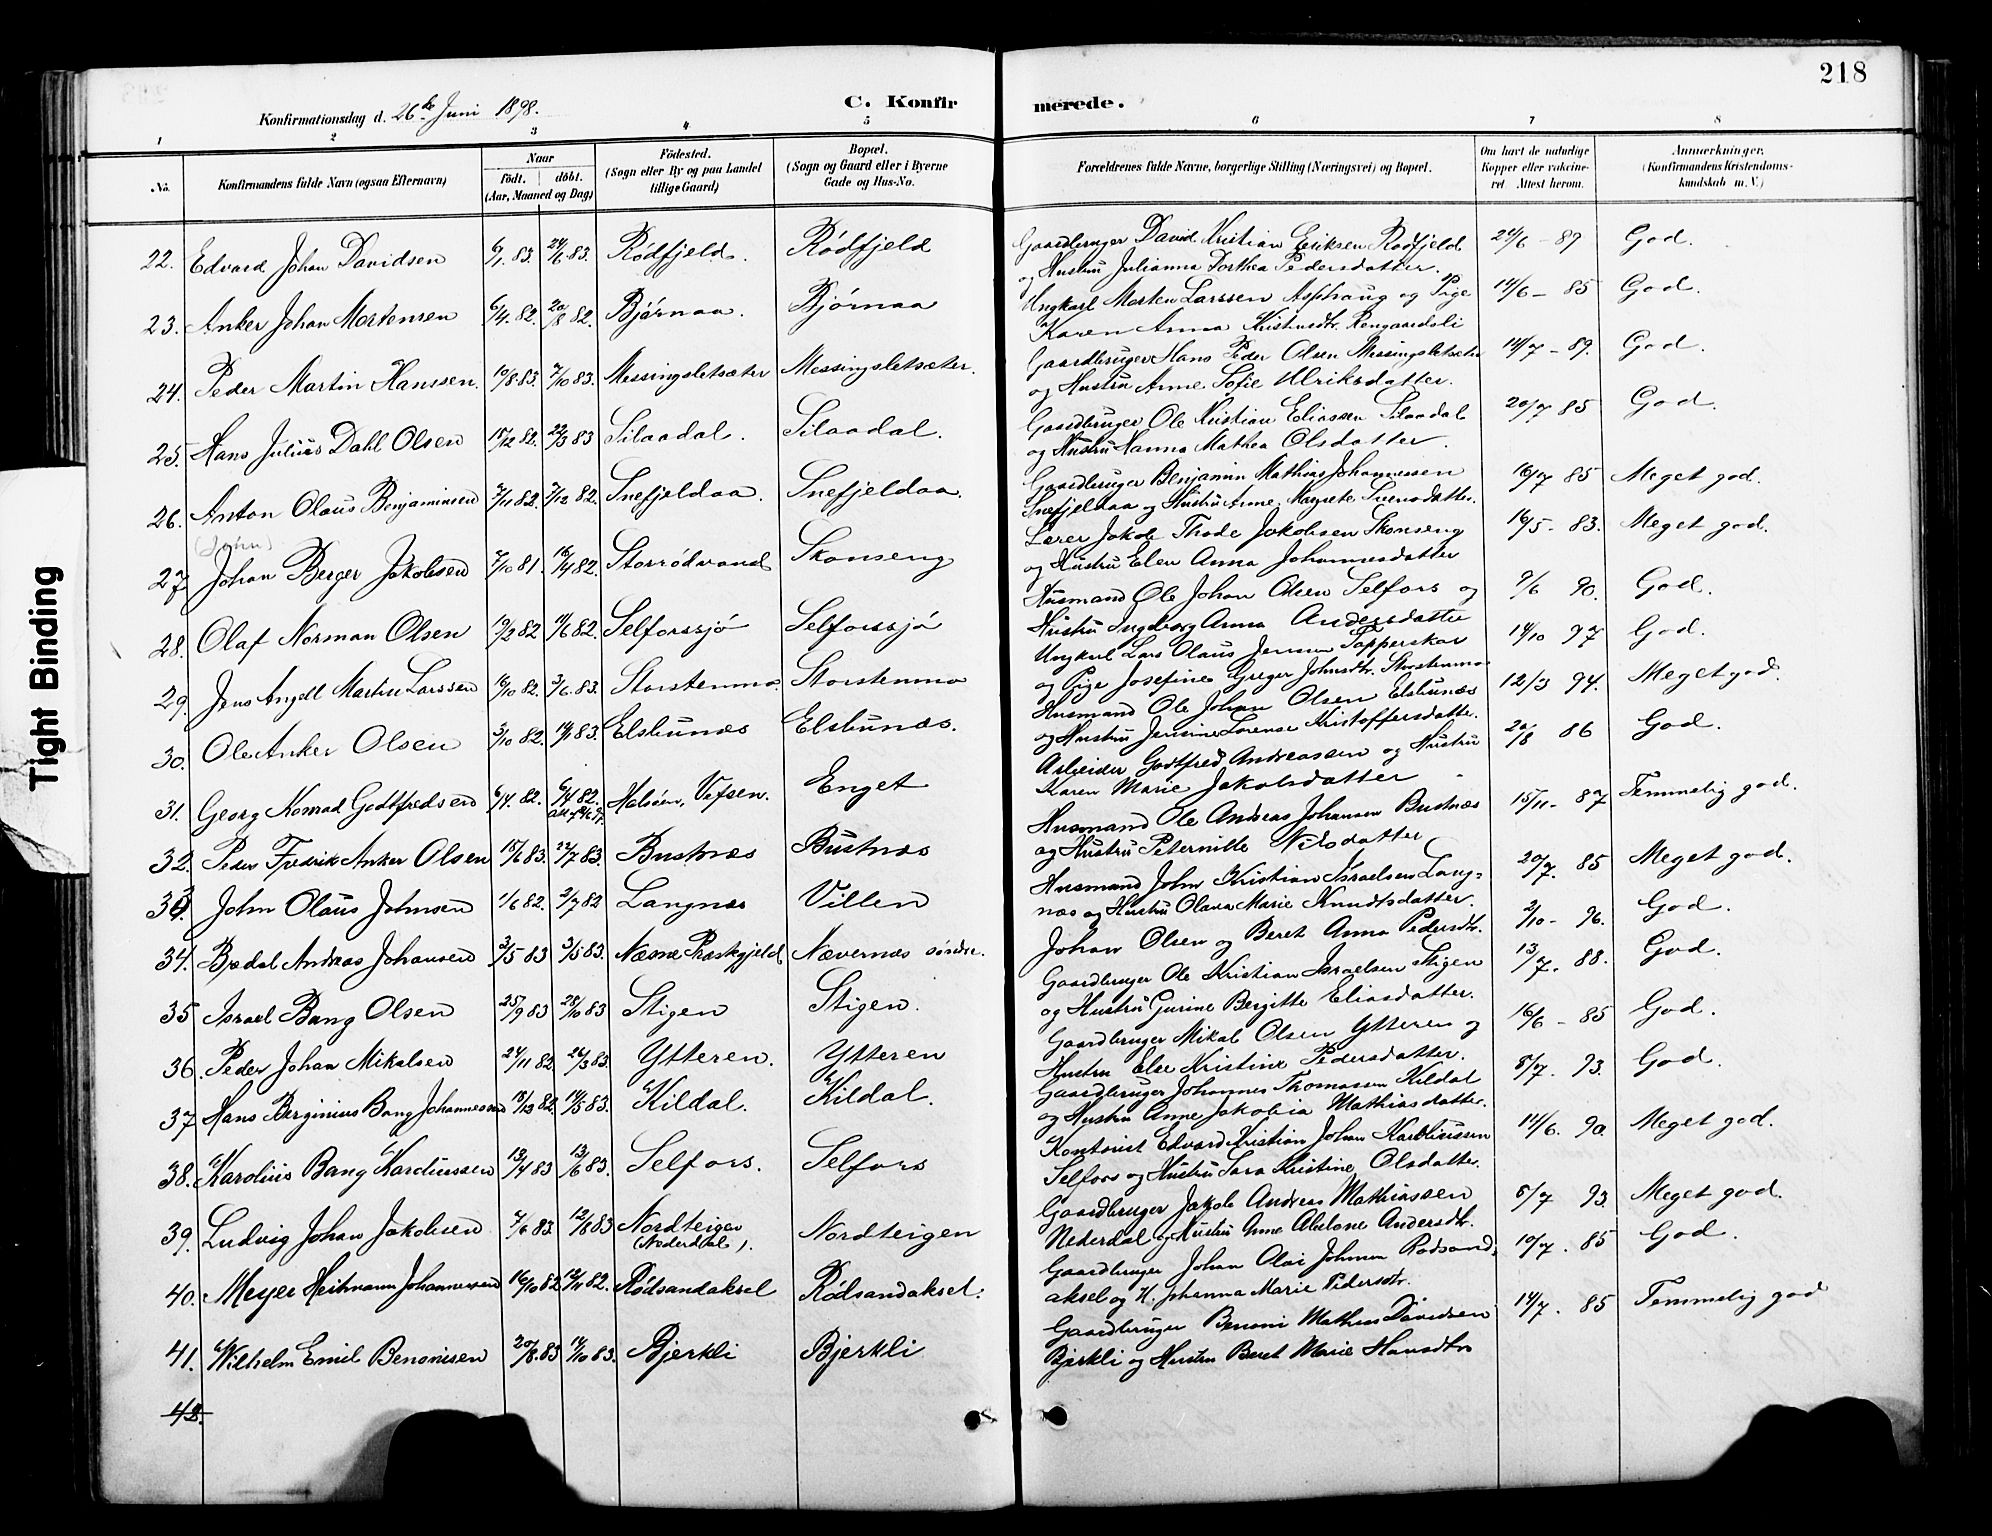 218
Konfirmationsdag d. 26de Juni 1898.
C. Konfirmerede.
1 2 3 4 5 6 7 8
No. Konfirmandens fulde Navn (ogsaa Efternavn) Naar födt. döbt. (Aar, Maaned og Dag) Födested. (Sogn eller By og paa Landet tillige Gaard) Bopæl. (Sogn og Gaard eller i Byerne Gade og Hus-No. Forældrenes fulde Navne, borgerlige Stilling (Næringsvei) og Bopæl. Om havt de naturlige Kopper eller vakcineret. Attest herom. Anmærkninger. (Konfirmandens Kristendomskundskab m. V.)
22. Edvard Johan Davidsen 6/1 83. 24/6 83. Rødfjeld. Rødfjeld Gaardbruger David Kristian Eriksen Rødfjeld 24/6 - 89 God.
og Hustru Julianna Dorthea Pedersdatter.
23. Anker Johan Mortensen 6/4 82. 20/8 82. Bjørnaa. Bjørnaa Ungkarl Morten Larssen Asphaug og Pige 14/6 - 85 God.
Karen Anna Kristensdtr. Rengaardsli
24. Peder Martin Hanssen. 10/8 83. 7/10 83. Messingsletsæter Messingsletsæter. Gaardbruger Hans Peder Olsen Messingsletsæter 14/7 - 89. God.
og Hustru Anne Sofie Ulriksdatter.
25. Hans Julius Dahl Olsen 15/12 82. 22/3 83 Silaadal. Silaadal. Gaardbruger Ole Kristian Eliassen Silaadal 20/7 85 God.
og Hustru Hanna Mathea Olsdatter.
26. Anton Olaus Benjaminsen 7/11 82. 7/12 82. Snefjeldaa. Snefjeldaa. Gaardbruger Benjamin Mathias Johannessen 16/7 85 Meget god.
Snefjeldaa og Hustru Anne Margrete Svensdatter.
(John)
27 Johan Berger Jakobsen 7/10 81. 16/4 82. Storrødvand Skonseng Lærer Jakob Thode Jakobsen Skonseng 16/5 - 83. Meget god.
og Hustru Elen Anna Johannesdatter
28. Olaf Norman Olsen 19/2 82 11/6 82. Selforssjø Selforssjø Husmand Ole Johan Olsen Selfors og 9/6 90. God.
Hustru Ingeborg Anna Andersdatter
29. Jens Angell Martin Larssen 16/10 82. 3/6 83. Storstenmo. Storstenmo Ungkarl Lars Olaus Jensen Tapperskar 14/10 97 God.
og Pige Josefine Greger Johnsdtr. Storstenmo
30. Ole Anker Olsen 3/10 82. 14/1 83. Elsbunæs Elsbunæs. Husmand Ole Johan Olsen Elsbunæs 12/3 94. Meget god.
og Hustru Jensine Lorense Kristoffersdatter.
31. Georg Konrad Godtfredsen 6/4 82. 6/4 82. Halsøen, Vefsen. Enget Arbeider Godtfred Andreassen og Hustru 20/8 86 God.
Karen Marie Jakobsdatter
32. Peder Fredrik Anker Olsen 15/6 83. 22/7 83. Bustnæs Bustnæs Husmand Ole Andreas Johansen Bustnæs 15/11 - 87 Temmelig god.
og Hustru Peternille Nilsdatter
33. John Olaus Johnsen 1/6 82. 2/7 82 Langnæs Villen Husmand John Kristian Israelsen Lang- 20/7. 85 Meget god.
næs og Hustru Olava Marie Knudtsdatter.
34. Bredal Andreas Johansen 3/5 83 3/5 83. Næsne Præstegjeld Nævernæs søndre. Johan Olsen og Beret Anna Pedersdtr. 2/10 - 96. God.
35 Israel Bang Olsen 25/9 83 28/10 83 Stigen Stigen. Gaardbruger Ole Kristian Israelsen Stigen 13/7. 88. God.
og Hustru Gurine Bergitte Eliasdatter.
36. Peder Johan Mikalsen 24/11 82 26/3 83. Ytteren. Ytteren Gaardbruger Mikal Olsen Ytteren og 16/6 - 85 God.
Hustru Else Kristine Pedersdatter.
37 Hans Berginius Bang Johannessen 18/12 82. 14/5 83. Kildal. Kildal. Gaardbruger Johannes Thomassen Kildal 8/7. 93. God.
og Hustru Anne Jakobia Mathiasdatter.
38. Karolius Bang Karoliussen 13/4 83 13/6 83. Selfors. Selfors Kontorist Edvard Kristian Johan Karoliussen 14/6. 90. Meget god.
Selfors og Hustru Sara Kristine Olsdatter.
39. Ludvig Johan Jakobsen 7/6 83. 12/8 83 Nordteigen (Nederdal). Nordteigen Gaardbruger Jakob Andreas Mathiassen 8/7 93. Meget god.
Nederdal og Hustru Anne Abelone Andersdtr.
40. Meyer Heitmann Johannessen 16/10 82 12/11 82. Rødsandaksel Rødsandaksel. Gaardbruger Johan Olai Johnsen Rødsand- 10/7. 85 God.
aksel og H. Johanna Marie Pedersdtr.
41. Wilhelm Emil Benonisen 20/8 83 14/10 83. Bjerkli Bjerkli Gaardbruger Benoni Mathias Davidsen 14/7. 85 Temmelig god
Bjerkli og Hustru Beret Marie Hansdtr
42.
Tight Binding